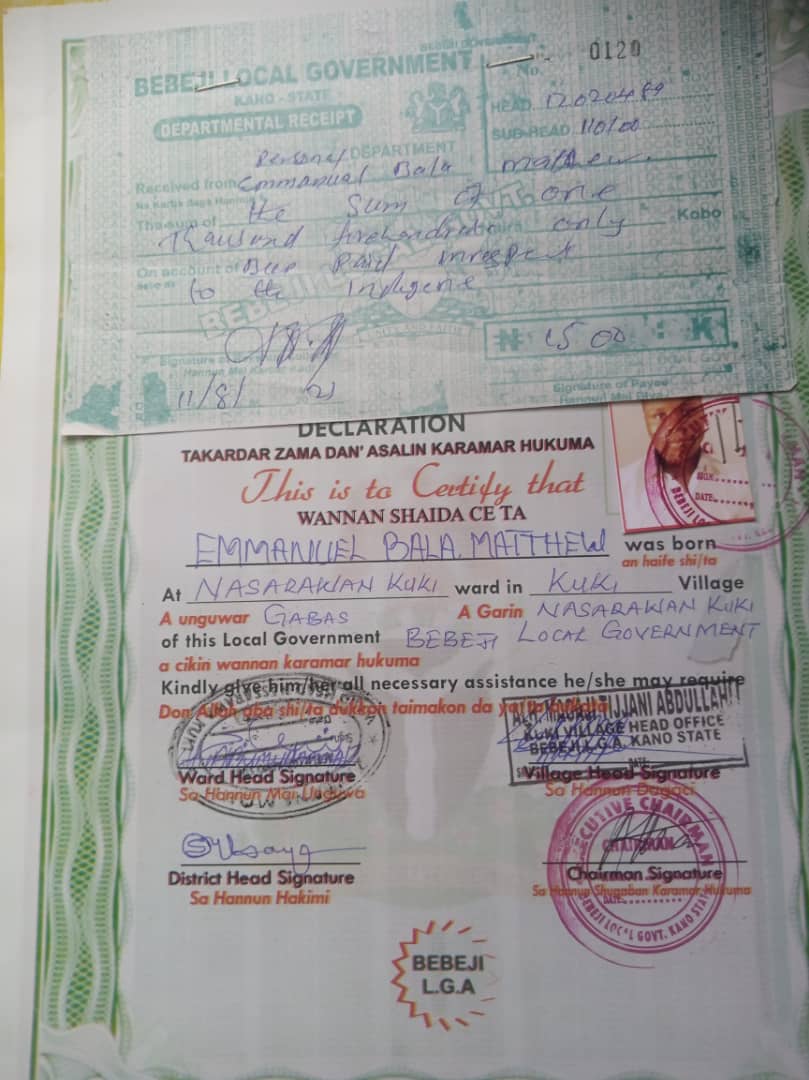 BEBEJI LOCAL GOVERNMENT
KANO - STATE
DEPARTMENTAL RECEIPT
No. 0120
HEAD 12020489
SUB-HEAD 110100
Personal DEPARTMENT
Received from Emmanual Bala mathew.
The sum of the Sum of one Kobo
Thausand only
On account of Been Paid inrespect
to the Indigene
₦ 1500 : K
Signature of
11/8/21
Signature of Payee
Hannun Mai
DECLARATION
TAKARDAR ZAMA DAN' ASALIN KARAMAR HUKUMA
This is to Certify that
WANNAN SHAIDA CE TA
EMMANUEL BALA MATTHEW was born
an haife shi/ta
At NASARAWAN KUKI ward in KUKI Village
A unguwar GABAS A Garin NASARAWAN KUKI
of this Local Government BEBEJI LOCAL GOVERNMENT
a cikin wannan karamar hukuma
Kindly give him/her all necessary assistance he/she may require
Don Allah aba shi/ta dukkan taimakon da
TIJJANI ABDULLAHI
KUKI VILLAGE HEAD OFFICE
BEBEJI L.G.A. KANO STATE
DATE
Ward Head Signature
Sa Hannun Mai Unguwa
Village Head Signature
Sa Hannun Dagaci
District Head Signature
Sa Hannun Hakimi
EXECUTIVE CHAIRMAN
CHAIRMAN
Chairman Signature
Sa Hannun Shugaban Karamar Hukuma
DATE
BEBEJI LOCAL GOVT. KANO STATE
BEBEJI
L.G.A